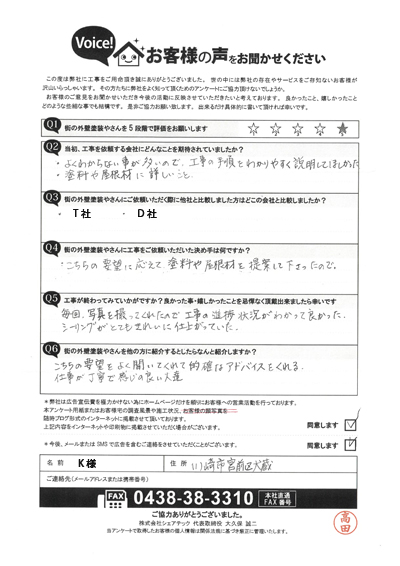 Voice!
お客様の声をお聞かせください
この度は弊社に工事をご用命頂き誠にありがとうございました。世の中には弊社の存在やサービスをご存知ないお客様が
沢山いらっしゃいます。その方たちに弊社をよく知って頂くためのアンケートにご協力頂けないでしょうか。
お客様のご意見をお聞かせいただき今後の活動に反映させていただきたいと考えております。良かったこと、嬉しかったこと
どのような些細な事でも結構です。是非ご協力お願い致します。出来るだけ具体的に書いて頂ければ幸いです。
Q1 街の外壁塗装やさんを5段階で評価をお願いします
☆ ☆ ☆ ☆ ★
Q2 当初、工事を依頼する会社にどんなことを期待されていましたか?
・よくわからない事が多いので、工事の手順をわかりやすく説明してほしかった
・塗料や屋根材に詳しいこと。
Q3 街の外壁塗装やさんにご依頼いただく際に他社と比較しました方はどこの会社と比較しましたか?
・ T社 ・ D社
Q4 街の外壁塗装やさんに工事をご依頼いただいた決め手は何ですか?
・こちらの要望に応えて、塗料や屋根材を提案して下さったので。
Q5 工事が終わってみていかがですか?良かった事・嬉しかったことを忌憚なく頂戴出来ましたら幸いです
毎回、写真を撮ってくれたので工事の進捗状況がわかって良かった。
シーリングがとてもきれいに仕上がっていた。
Q6 街の外壁塗装やさんを他の方に紹介するとしたらなんと紹介しますか?
こちらの要望をよく聞いてくれて的確なアドバイスをくれる。
仕事が丁寧で感じの良い大達
＊弊社は広告宣伝費を極力かけない為にホームページだけを頼りにお客様への営業活動を行っております。
本アンケート用紙またはお客様宅の調査風景や施工状況、お客様の顔写真を
随時ブログ形式のインターネットに掲載させて頂いております。
上記内容をインターネットや印刷物に掲載させていただく場合がございます。 同意します ☑
＊今後、メールまたはSMSで広告を含むご連絡をさせていただくことがございます。 同意します ☑
名前 K様 住所 川崎市宮前区犬蔵
ご連絡先(メールアドレスまたは携帯番号)
FAX 0438-38-3310 本社直通 FAX番号
ご協力ありがとうございました。
株式会社シェアテック 代表取締役 大久保 誠二
当アンケートで取得したお客様の個人情報は関係法規に基づき厳正に管理いたします。
高田